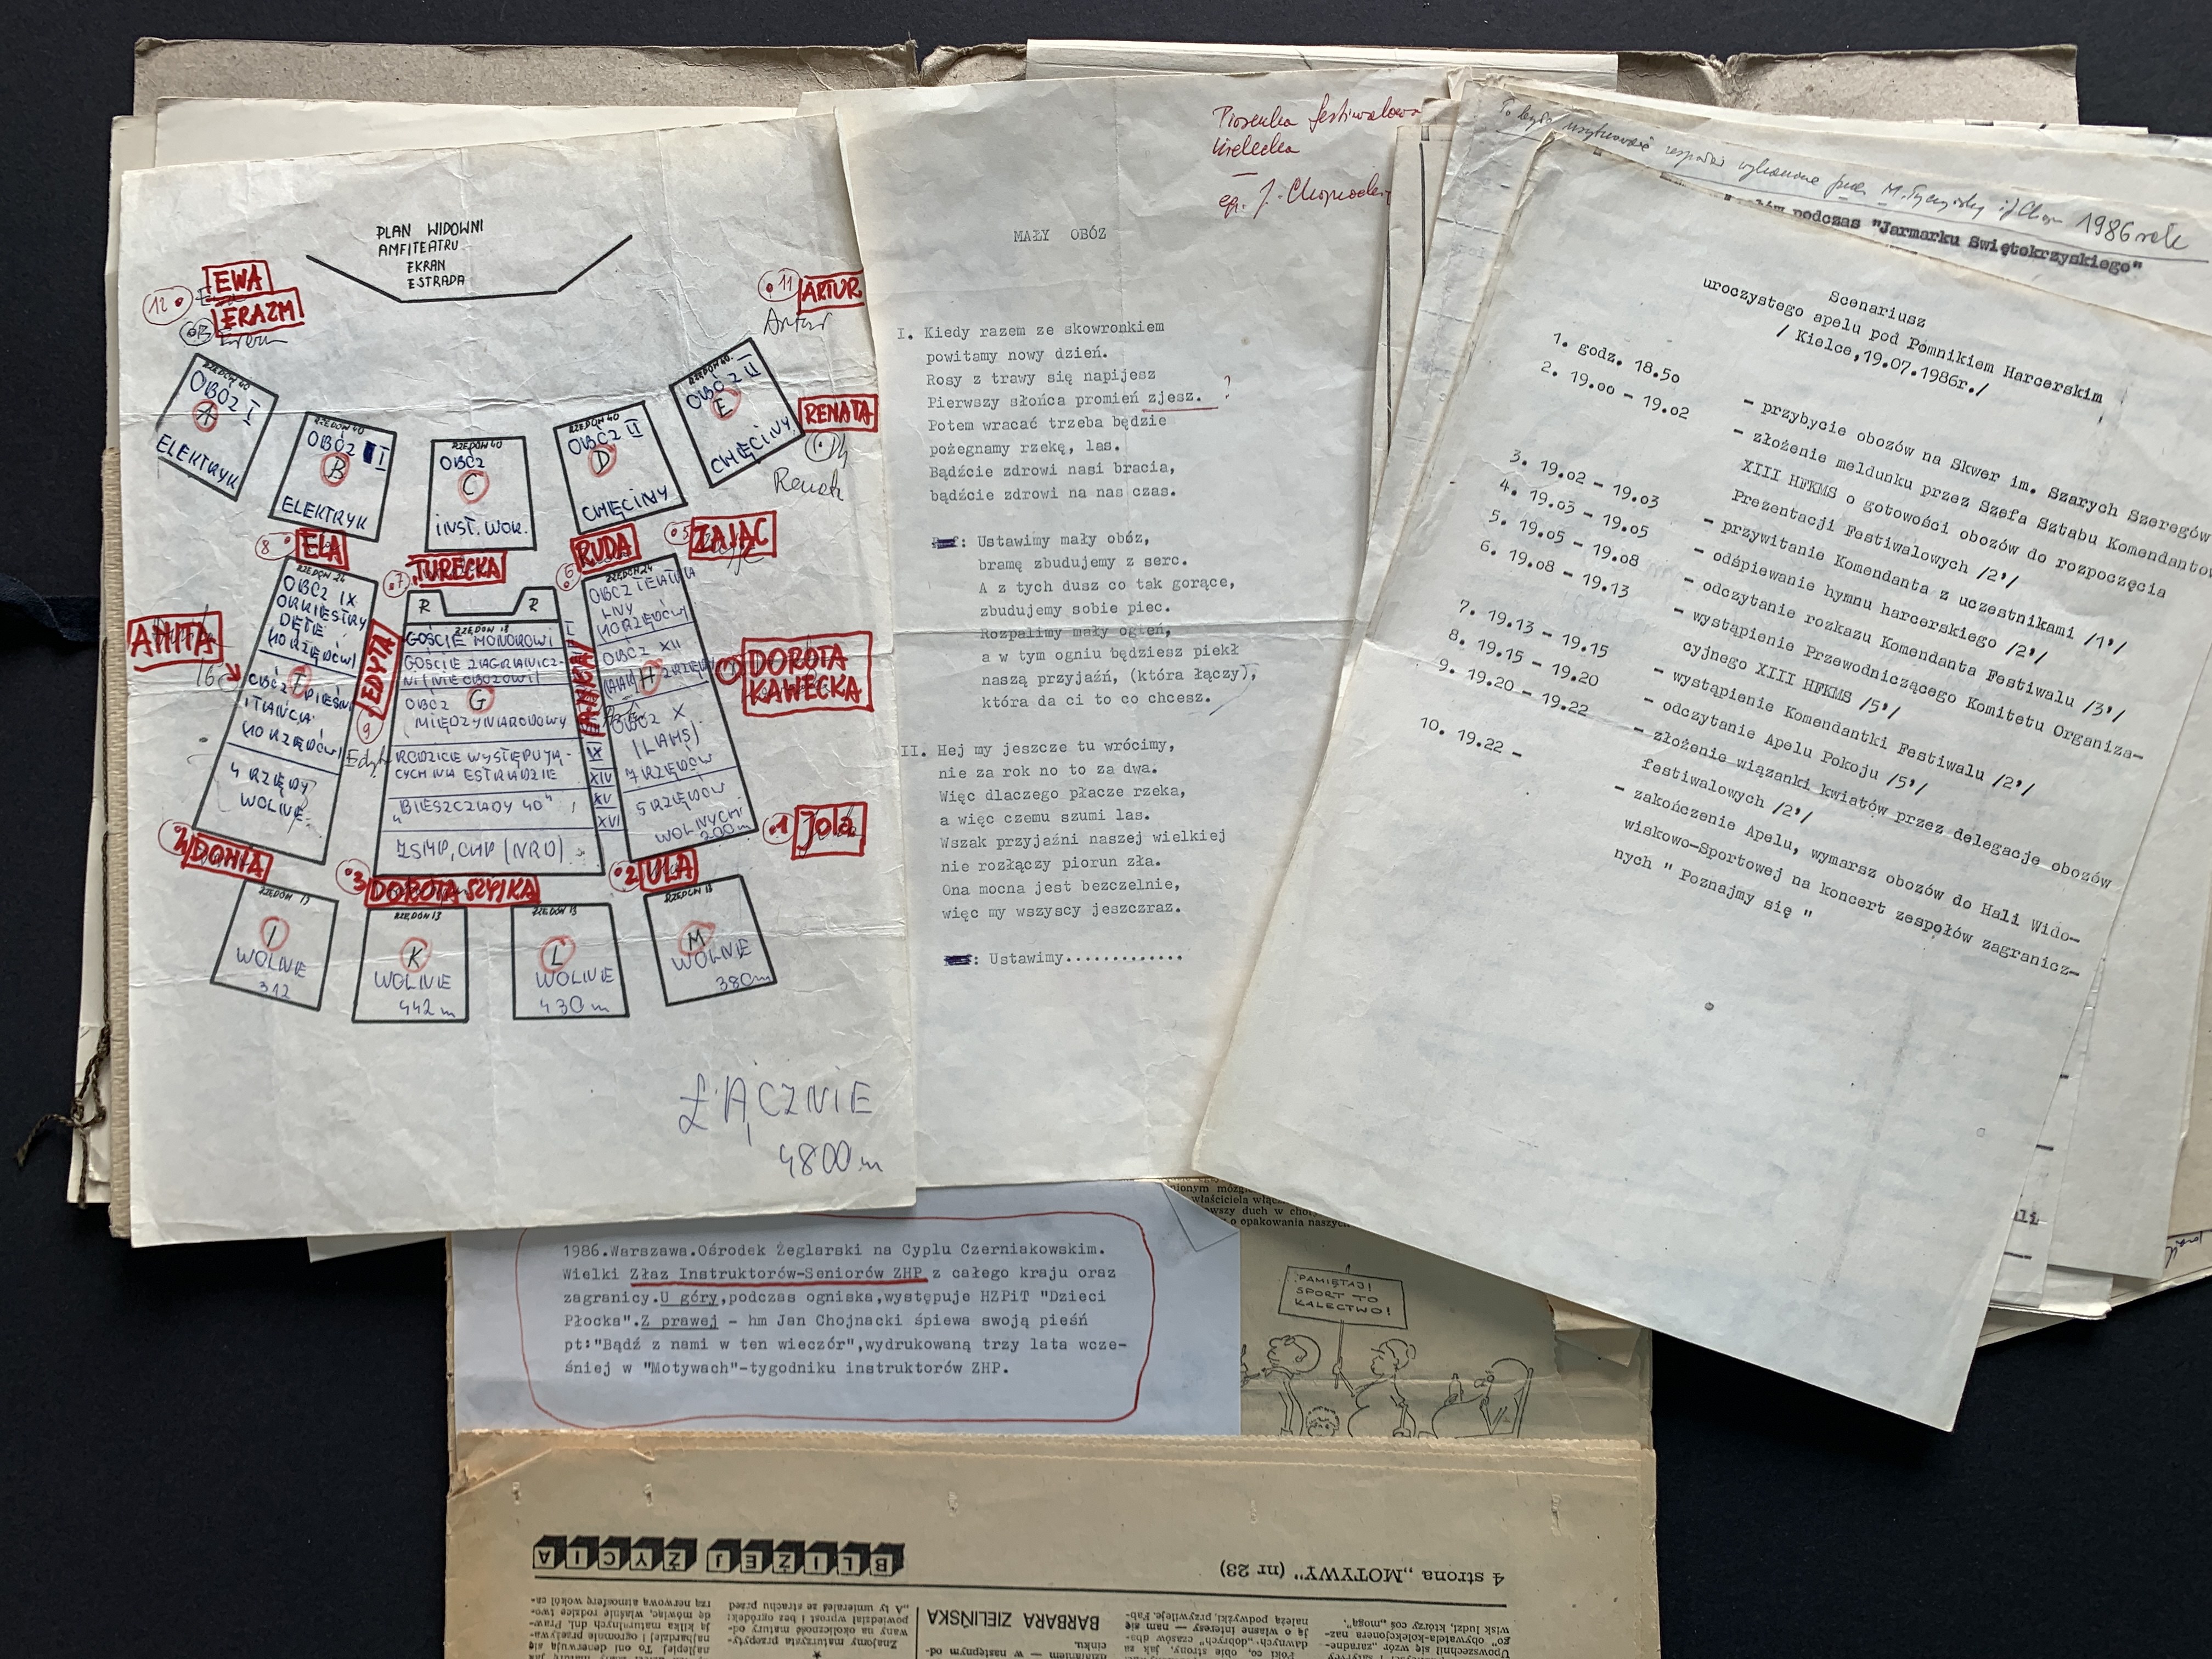 PLAN WIDOWNI
AMFITEATRU
EKRAN
ESTRADA
12
EWA
ERAZM
11
ARTUR
Artur
RZĘDÓW 40
OBÓZ I
A
ELEKTRYK
RZĘDÓW 40
OBÓZ I
B
ELEKTRYK
RZĘDÓW 40
OBÓZ
C
INST. WOK.
RZĘDÓW 40
OBÓZ II
D
CHĘCINY
RZĘDÓW 40
OBÓZ II
E
CHĘCINY
RENATA
Renata
8
ELA
7
TURECKA
6
RUDA
5
ZAJĄC
ANITA
16
RZĘDÓW 24
OBÓZ IX
ORKIESTRY
DĘTE
/10 RZĘDÓW/
F
OBÓZ PIEŚNI
i TAŃCA
/10 RZĘDÓW/
4 RZĘDY
WOLNE
9
EDYTA
R R
RZĘDÓW 18
GOŚCIE HONOROWI
GOŚCIE ZAGRANICZ-
NI /NIE OBOZOWI/
OBÓZ G
MIĘDZYNARODOWY
RODZICE WYSTĘPUJĄ-
CYCH NA ESTRADZIE
"BIESZCZADY 40"
ZSMP, CHP (NRD)
IX
XIV
XV
XVI
RZĘDÓW 24
OBÓZ TEATRA
LNY
/10 RZĘDÓW/
OBÓZ XII
H
OBÓZ X
(LAMS)
7 RZĘDÓW
5 RZĘDÓW
WOLNYCH
200 m
DOROTA
KAWECKA
1
Jola
4
DONIA
3
DOROTA SZYJKA
2
ULA
RZĘDÓW 13
WOLNE
312
RZĘDÓW 13
K
WOLNE
442 m
RZĘDÓW 13
L
WOLNE
430 m
RZĘDÓW 13
M
WOLNE
380 m
ŁĄCZNIE
4800 m
Piosenka festiwalowa
kielecka
eg. J. Chojnacki
MAŁY OBÓZ
I. Kiedy razem ze skowronkiem
powitamy nowy dzień.
Rosy z trawy się napijesz
Pierwszy słońca promień zjesz. ?
Potem wracać trzeba będzie
pożegnamy rzekę, las.
Bądźcie zdrowi nasi bracia,
bądźcie zdrowi na nas czas.
: Ustawimy mały obóz,
bramę zbudujemy z serc.
A z tych dusz co tak gorące,
zbudujemy sobie piec.
Rozpalimy mały ogień,
a w tym ogniu będziesz piekł
naszą przyjaźń, (która łączy),
która da ci to co chcesz.
II. Hej my jeszcze tu wrócimy,
nie za rok no to za dwa.
Więc dlaczego płacze rzeka,
a więc czemu szumi las.
Wszak przyjaźni naszej wielkiej
nie rozłączy piorun zła.
Ona mocna jest bezczelnie,
więc my wszyscy jeszczraz.
: Ustawimy.............
wykonane przez M. i J. 1986 rok
podczas "Jarmarku Świętokrzyskiego"
Scenariusz
uroczystego apelu pod Pomnikiem Harcerskim
/ Kielce,19.07.1986r./
1. godz. 18.50 - przybycie obozów na Skwer im. Szarych Szeregów
2. 19.00 - 19.02 - złożenie meldunku przez Szefa Sztabu Komendantowi
XIII HFKMS o gotowości obozów do rozpoczęcia
Prezentacji Festiwalowych /2'/
3. 19.02 - 19.03 - przywitanie Komendanta z uczestnikami /1'/
4. 19.03 - 19.05 - odśpiewanie hymnu harcerskiego /2'/
5. 19.05 - 19.08 - odczytanie rozkazu Komendanta Festiwalu /3'/
6. 19.08 - 19.13 - wystąpienie Przewodniczącego Komitetu Organiza-
cyjnego XIII HFKMS /5'/
7. 19.13 - 19.15 - wystąpienie Komendantki Festiwalu /2'/
8. 19.15 - 19.20 - odczytanie Apelu Pokoju /5'/
9. 19.20 - 19.22 - złożenie wiązanki kwiatów przez delegacje obozów
festiwalowych /2'/
10. 19.22 - - zakończenie Apelu, wymarsz obozów do Hali Wido-
wiskowo-Sportowej na koncert zespołów zagranicz-
nych " Poznajmy się "
właściciela
o opakowania naszych
1986.Warszawa.Ośrodek Żeglarski na Cyplu Czerniakowskim.
Wielki Złaz Instruktorów-Seniorów ZHP z całego kraju oraz
zagranicy.U góry,podczas ogniska,występuje HZPiT "Dzieci
Płocka".Z prawej - hm Jan Chojnacki śpiewa swoją pieśń
pt:"Bądź z nami w ten wieczór",wydrukowaną trzy lata wcze-
śniej w "Motywach"-tygodniku instruktorów ZHP.
PAMIĘTAJ!
SPORT TO
KALECTWO!
4 strona „MOTYWY" (nr 23)
BLIŻEJ ŻYCIA
BARBARA ZIELIŃSKA